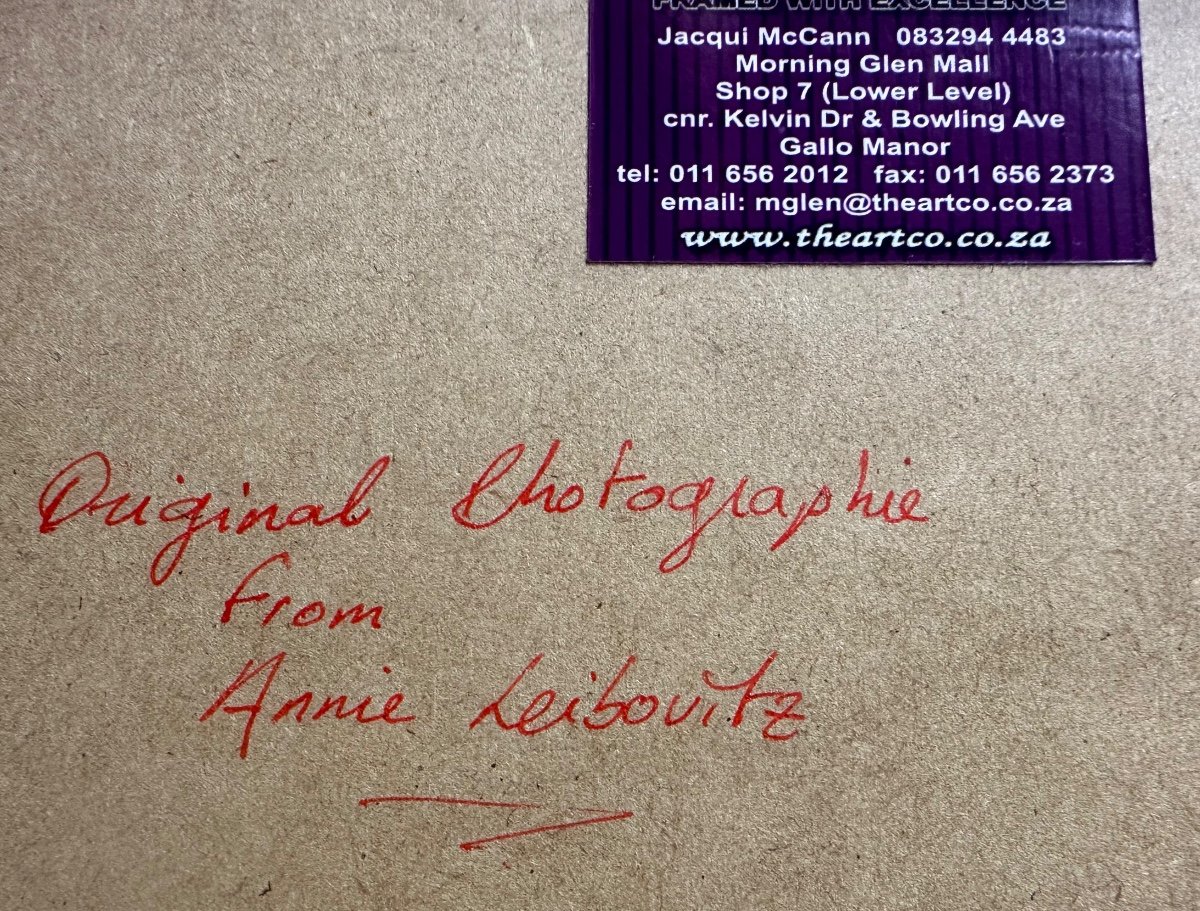 FRAMED WITH EXCELLENCE
Jacqui McCann 083294 4483
Morning Glen Mall
Shop 7 (Lower Level)
cnr. Kelvin Dr & Bowling Ave
Gallo Manor
tel: 011 656 2012 fax: 011 656 2373
email: mglen@theartco.co.za
www.theartco.co.za
Original Photographie
from
Annie Leibovitz